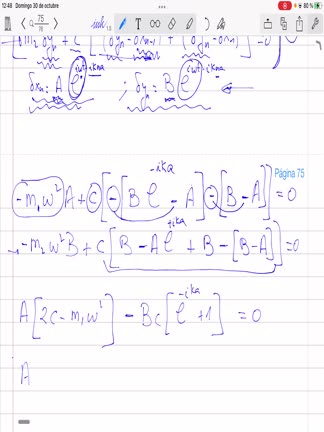 12:48 Domingo 30 de octubre 80 %
75
75
m₂ δÿₙ + C [δyₙ - δxₙ₊₁ + (δyₙ - δxₙ)] = 0
δxₙ = A e^{iωt - ikna} ; δyₙ = B e^{iωt - ikna} ←
Página 75
-m₁ω²A + C[-[B e^{-ika} - A] - [B - A]] = 0
→ -m₂ω²B + C[B - A e^{+ika} + B - [B - A]] = 0
A[2C - m₁ω²] - BC[e^{-ika} + 1] = 0
A